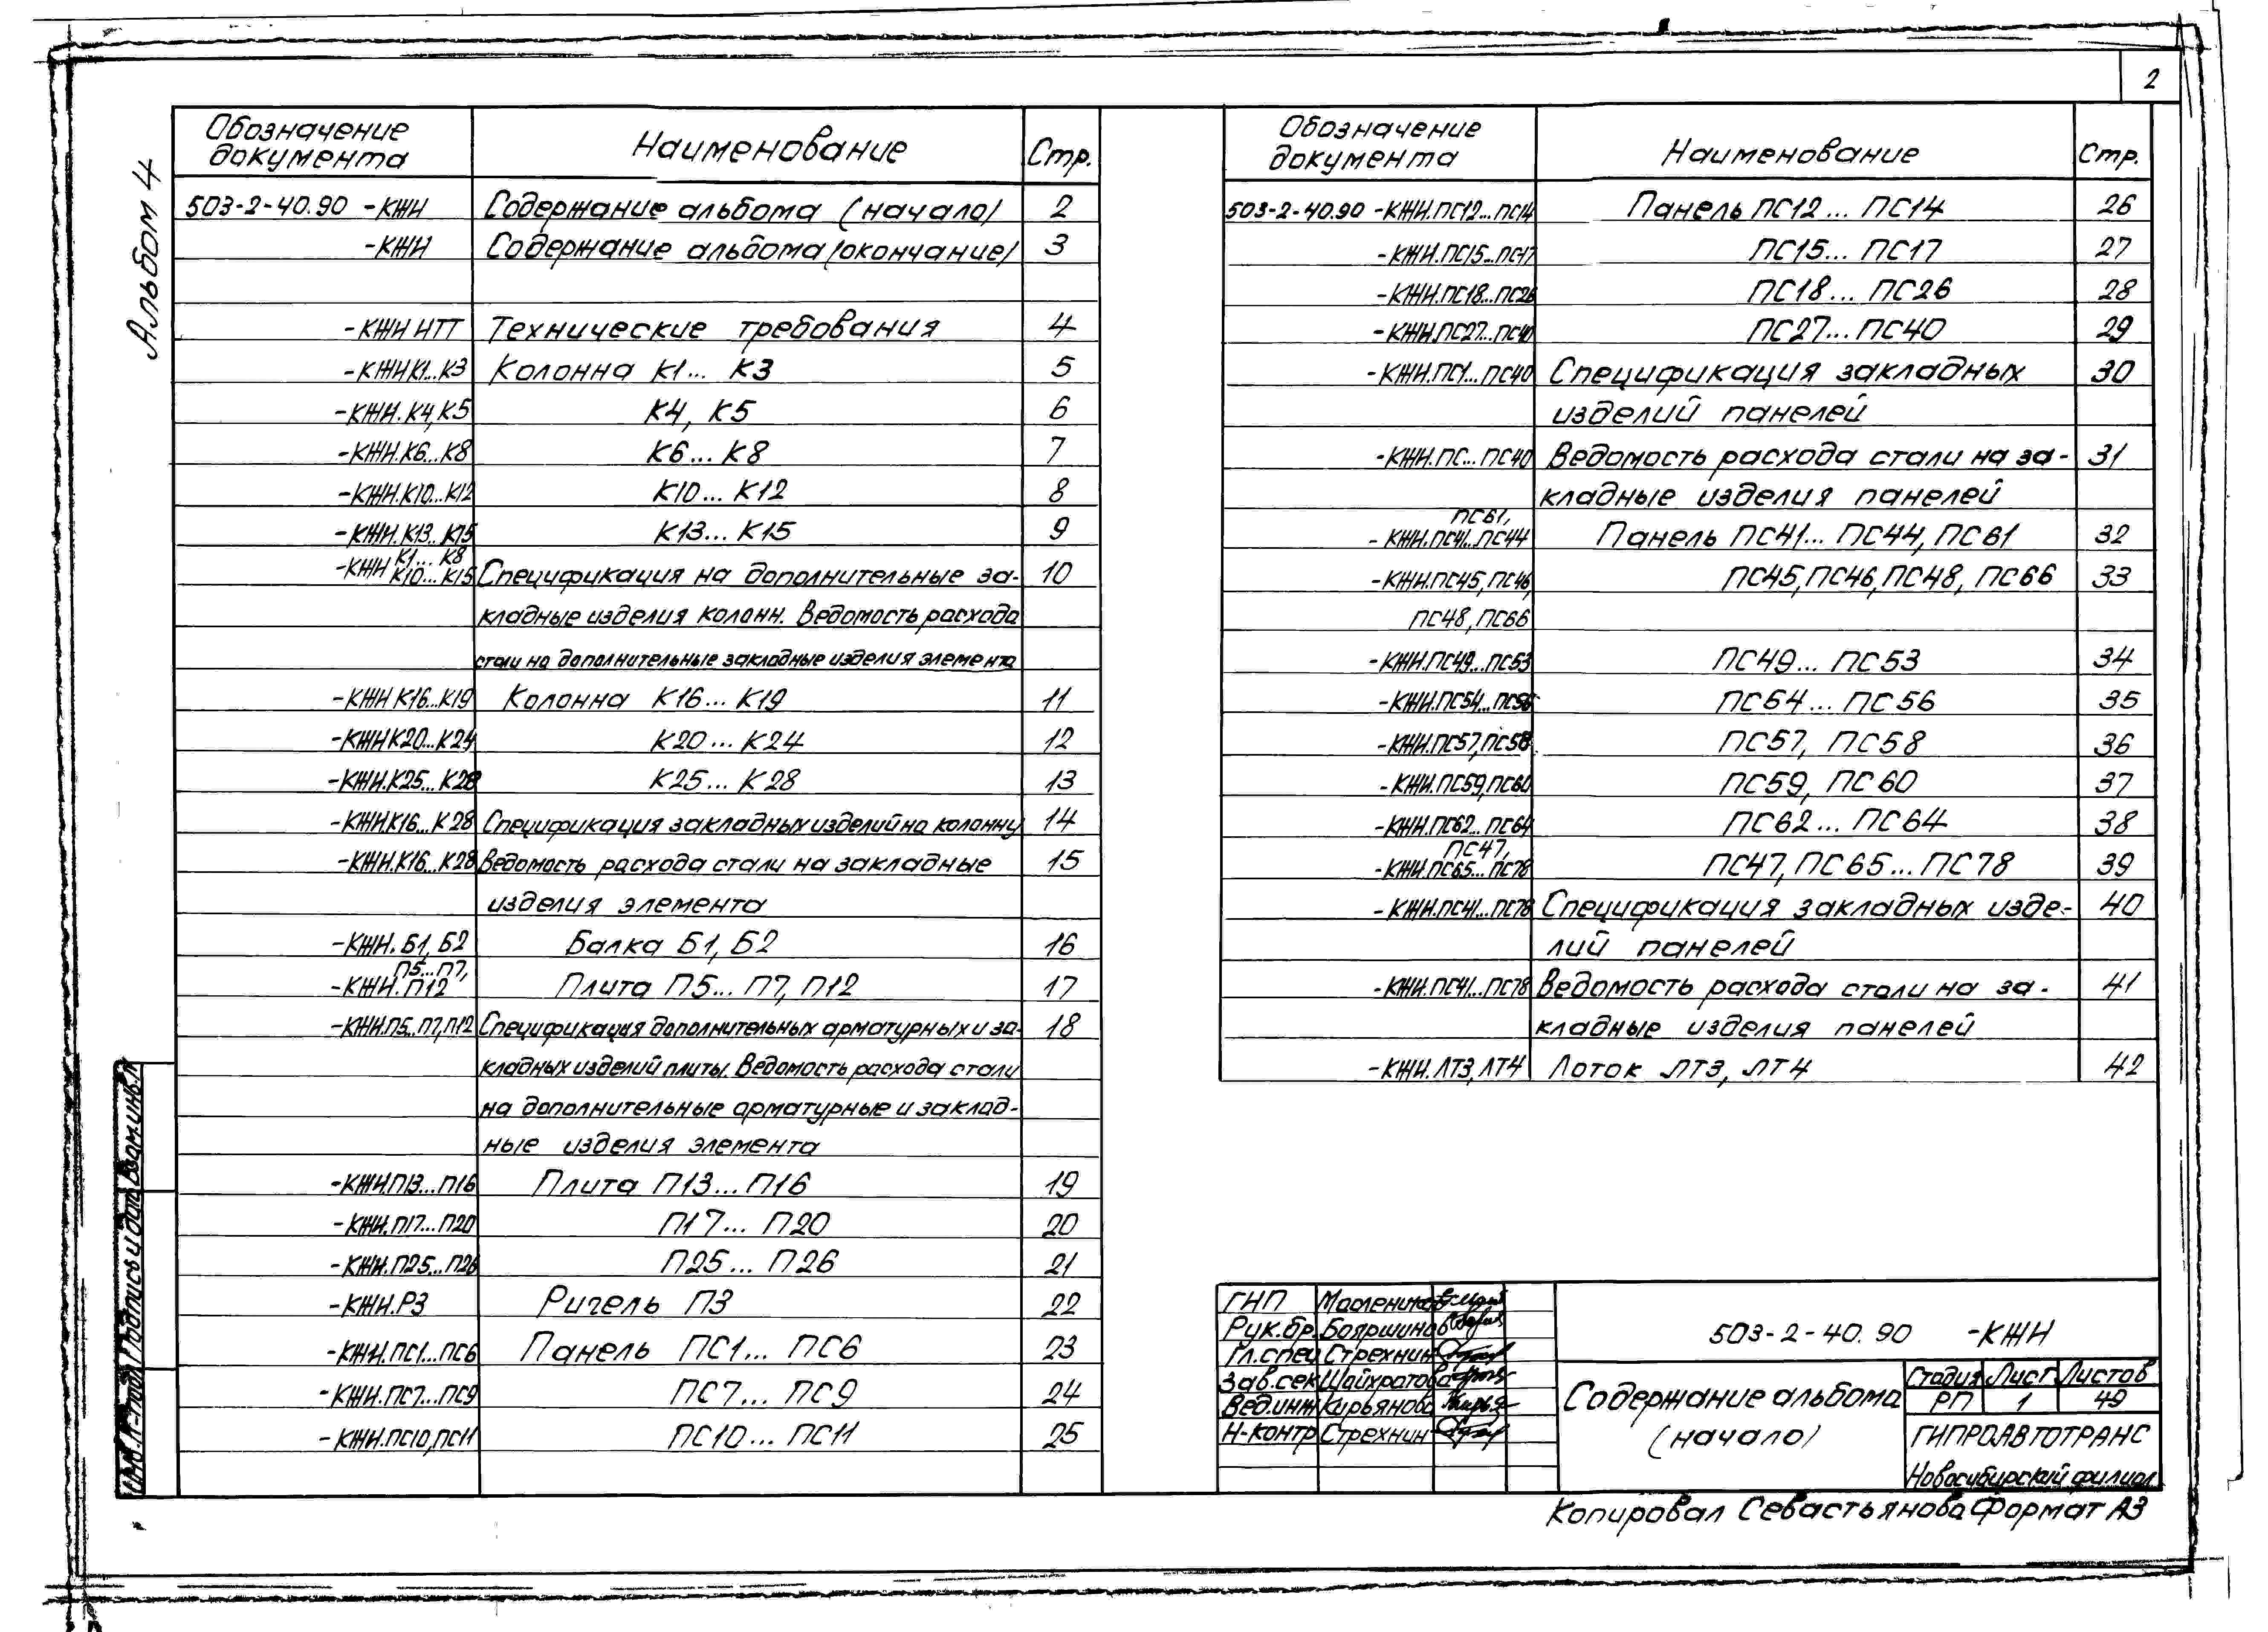 2
Альбом 4
Обозначение документа Наименование Стр.
503-2-40.90 -КЖИ Содержание альбома (начало) 2
-КЖИ Содержание альбома (окончание) 3
-КЖИ НТТ Технические требования 4
-КЖИ К1...К3 Колонна К1... К3 5
-КЖИ.К4,К5 К4, К5 6
-КЖИ.К6...К8 К6...К8 7
-КЖИ.К10...К12 К10...К12 8
-КЖИ.К13...К15 К13...К15 9
К1...К8
-КЖИ К10...К15 Спецификация на дополнительные за- 10
кладные изделия колонн. Ведомость расхода
стали на дополнительные закладные изделия элемента
-КЖИ К16...К19 Колонна К16...К19 11
-КЖИ К20...К24 К20...К24 12
-КЖИ.К25...К28 К25...К28 13
-КЖИ К16...К28 Спецификация закладных изделий на колонну 14
-КЖИ.К16...К28 Ведомость расхода стали на закладные 15
изделия элемента
-КЖИ. Б1, Б2 Балка Б1, Б2 16
П5...П7,
-КЖИ.П12 Плита П5... П7, П12 17
-КЖИ.П5...П7,П12 Спецификация дополнительных арматурных и за- 18
кладных изделий плиты. Ведомость расхода стали
на дополнительные арматурные и заклад-
ные изделия элемента
-КЖИ П13...П16 Плита П13...П16 19
-КЖИ.П17...П20 П17... П20 20
-КЖИ.П25...П26 П25... П26 21
-КЖИ.Р3 Ригель П3 22
-КЖИ.ПС1...ПС6 Панель ПС1... ПС6 23
-КЖИ.ПС7...ПС9 ПС7... ПС9 24
-КЖИ.ПС10,ПС11 ПС10... ПС11 25
Обозначение документа Наименование Стр.
503-2-40.90 -КЖИ.ПС12...ПС14 Панель ПС12... ПС14 26
-КЖИ.ПС15...ПС17 ПС15... ПС17 27
-КЖИ.ПС18...ПС26 ПС18... ПС26 28
-КЖИ.ПС27...ПС40 ПС27...ПС40 29
-КЖИ.ПС1...ПС40 Спецификация закладных 30
изделий панелей
-КЖИ.ПС...ПС40 Ведомость расхода стали на за- 31
кладные изделия панелей
ПС61,
-КЖИ.ПС41...ПС44 Панель ПС41... ПС44, ПС61 32
-КЖИ.ПС45, ПС46, ПС45, ПС46, ПС48, ПС66 33
ПС48, ПС66
-КЖИ.ПС49...ПС53 ПС49... ПС53 34
-КЖИ.ПС54...ПС56 ПС54... ПС56 35
-КЖИ.ПС57,ПС58 ПС57, ПС58 36
-КЖИ.ПС59,ПС60 ПС59, ПС60 37
-КЖИ.ПС62...ПС64 ПС62... ПС64 38
ПС47,
-КЖИ.ПС65...ПС78 ПС47, ПС65...ПС78 39
-КЖИ.ПС41...ПС78 Спецификация закладных изде- 40
лий панелей
-КЖИ.ПС41...ПС78 Ведомость расхода стали на за- 41
кладные изделия панелей
-КЖИ.ЛТ3, ЛТ4 Лоток ЛТ3, ЛТ4 42
ГИП
Рук.бр. Бояршинов
Гл.спец Стрехнин
Зав.сек Шайхратова
Вед.инж Кирьянова
Н-контр Стрехнин
503-2-40.90 -КЖИ
Содержание альбома
(начало)
Стадия Лист Листов
РП 1 49
ГИПРОАВТОТРАНС
Новосибирский филиал
Копировал Севастьянова Формат А3
Инв. № подл. Подпись и дата Взам.инв.№